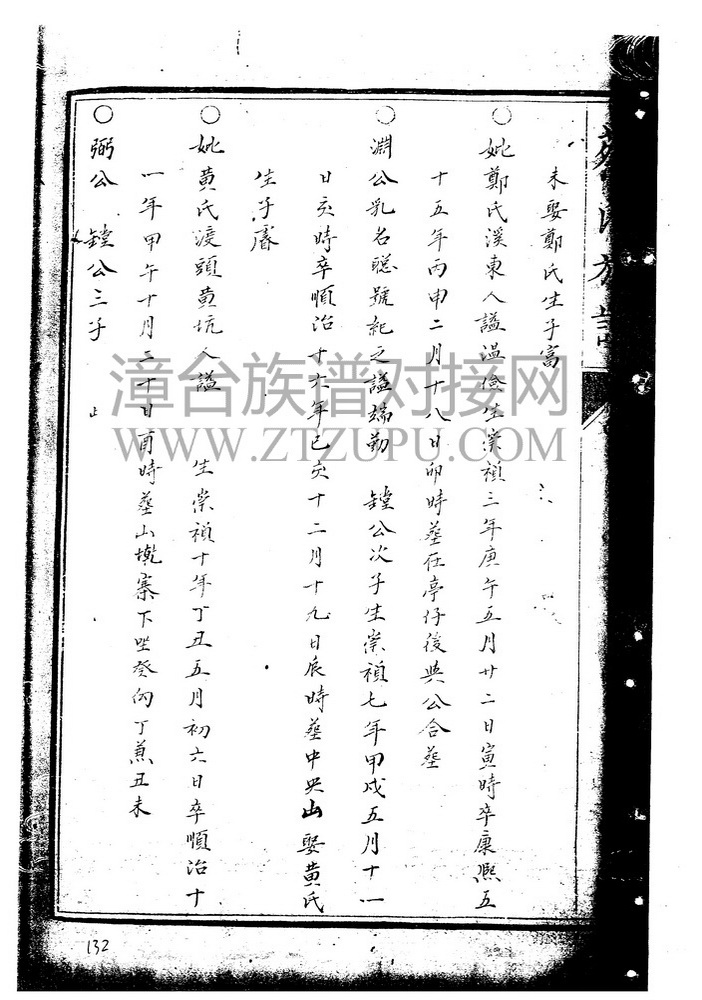 未娶鄭氏生子富
○妣鄭氏溪東人謚温儉生崇禎三年庚午五月廿二日寅時卒康熈五
十五年丙申二月十八日卯時葬在亭仔後與公合葬
○淵公乳名聡號紀之謚端勤 鏜公次子生崇禎七年甲戌五月十一
日亥時卒順治十六年已亥十二月十九日辰時葬中央山娶黄氏
生子
○妣黄氏渡頭黄坑人謚 生崇禎十年丁丑五月初六日卒順治十
一年甲午十月三十日酉時葬山墘寨下坐癸向丁兼丑未
○弼公 鏜公三子 止
132
漳台族谱对接网
WWW.ZTZUPU.COM